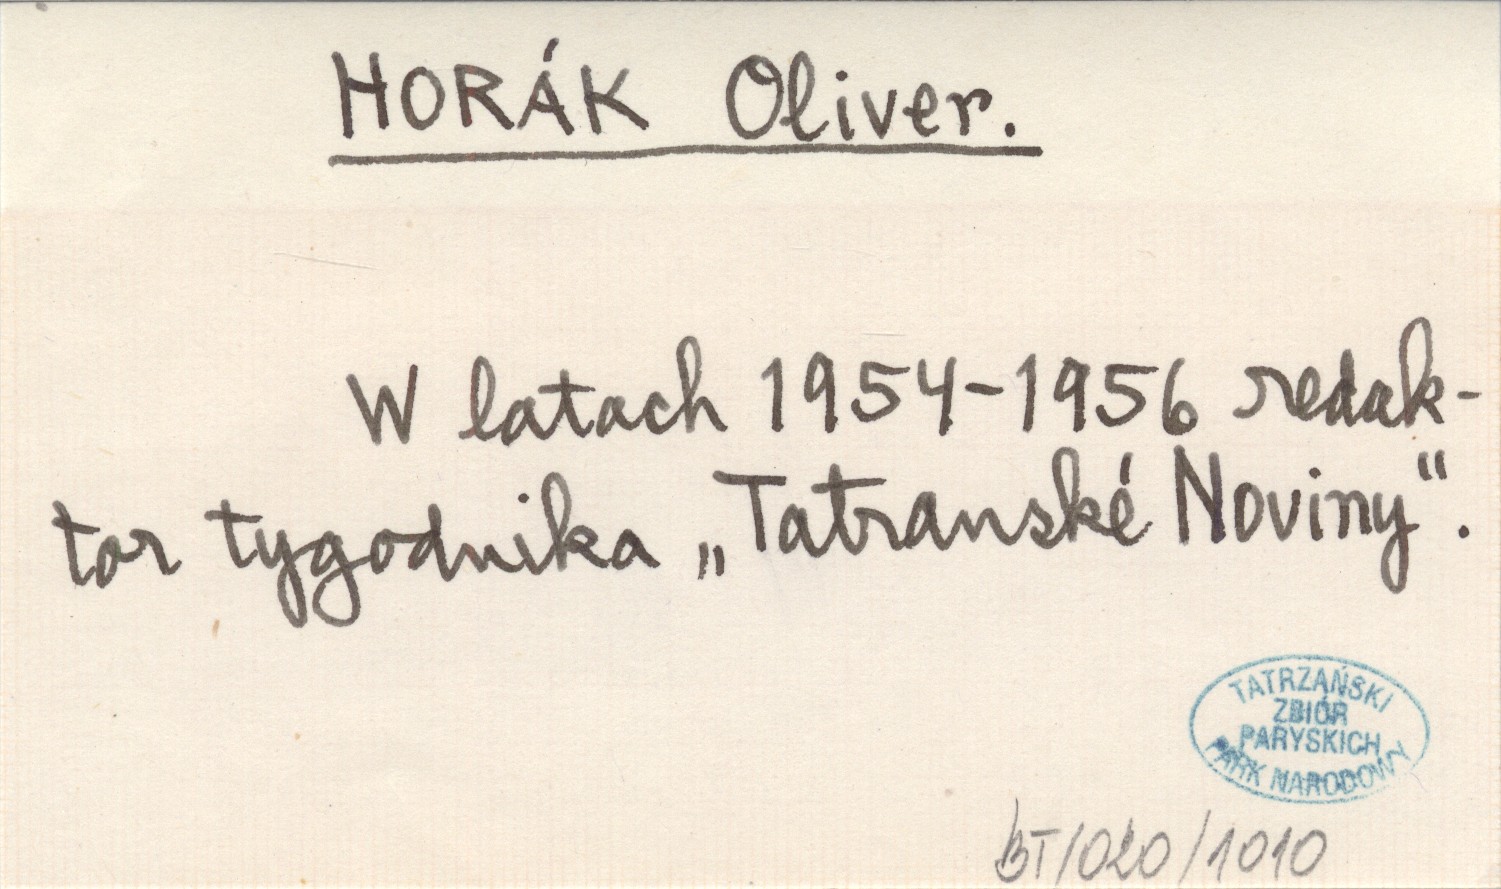 HORÁK Oliver.
W latach 1954-1956 redak-
tor tygodnika „Tatranské Noviny".
TATRZAŃSKI
ZBIÓR
PARYSKICH
PARK NARODOWY
BT/020/1010